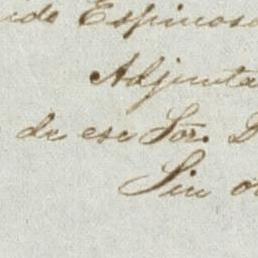 ido Espinosa
Adjunta
de ese Sor. D
Sin o